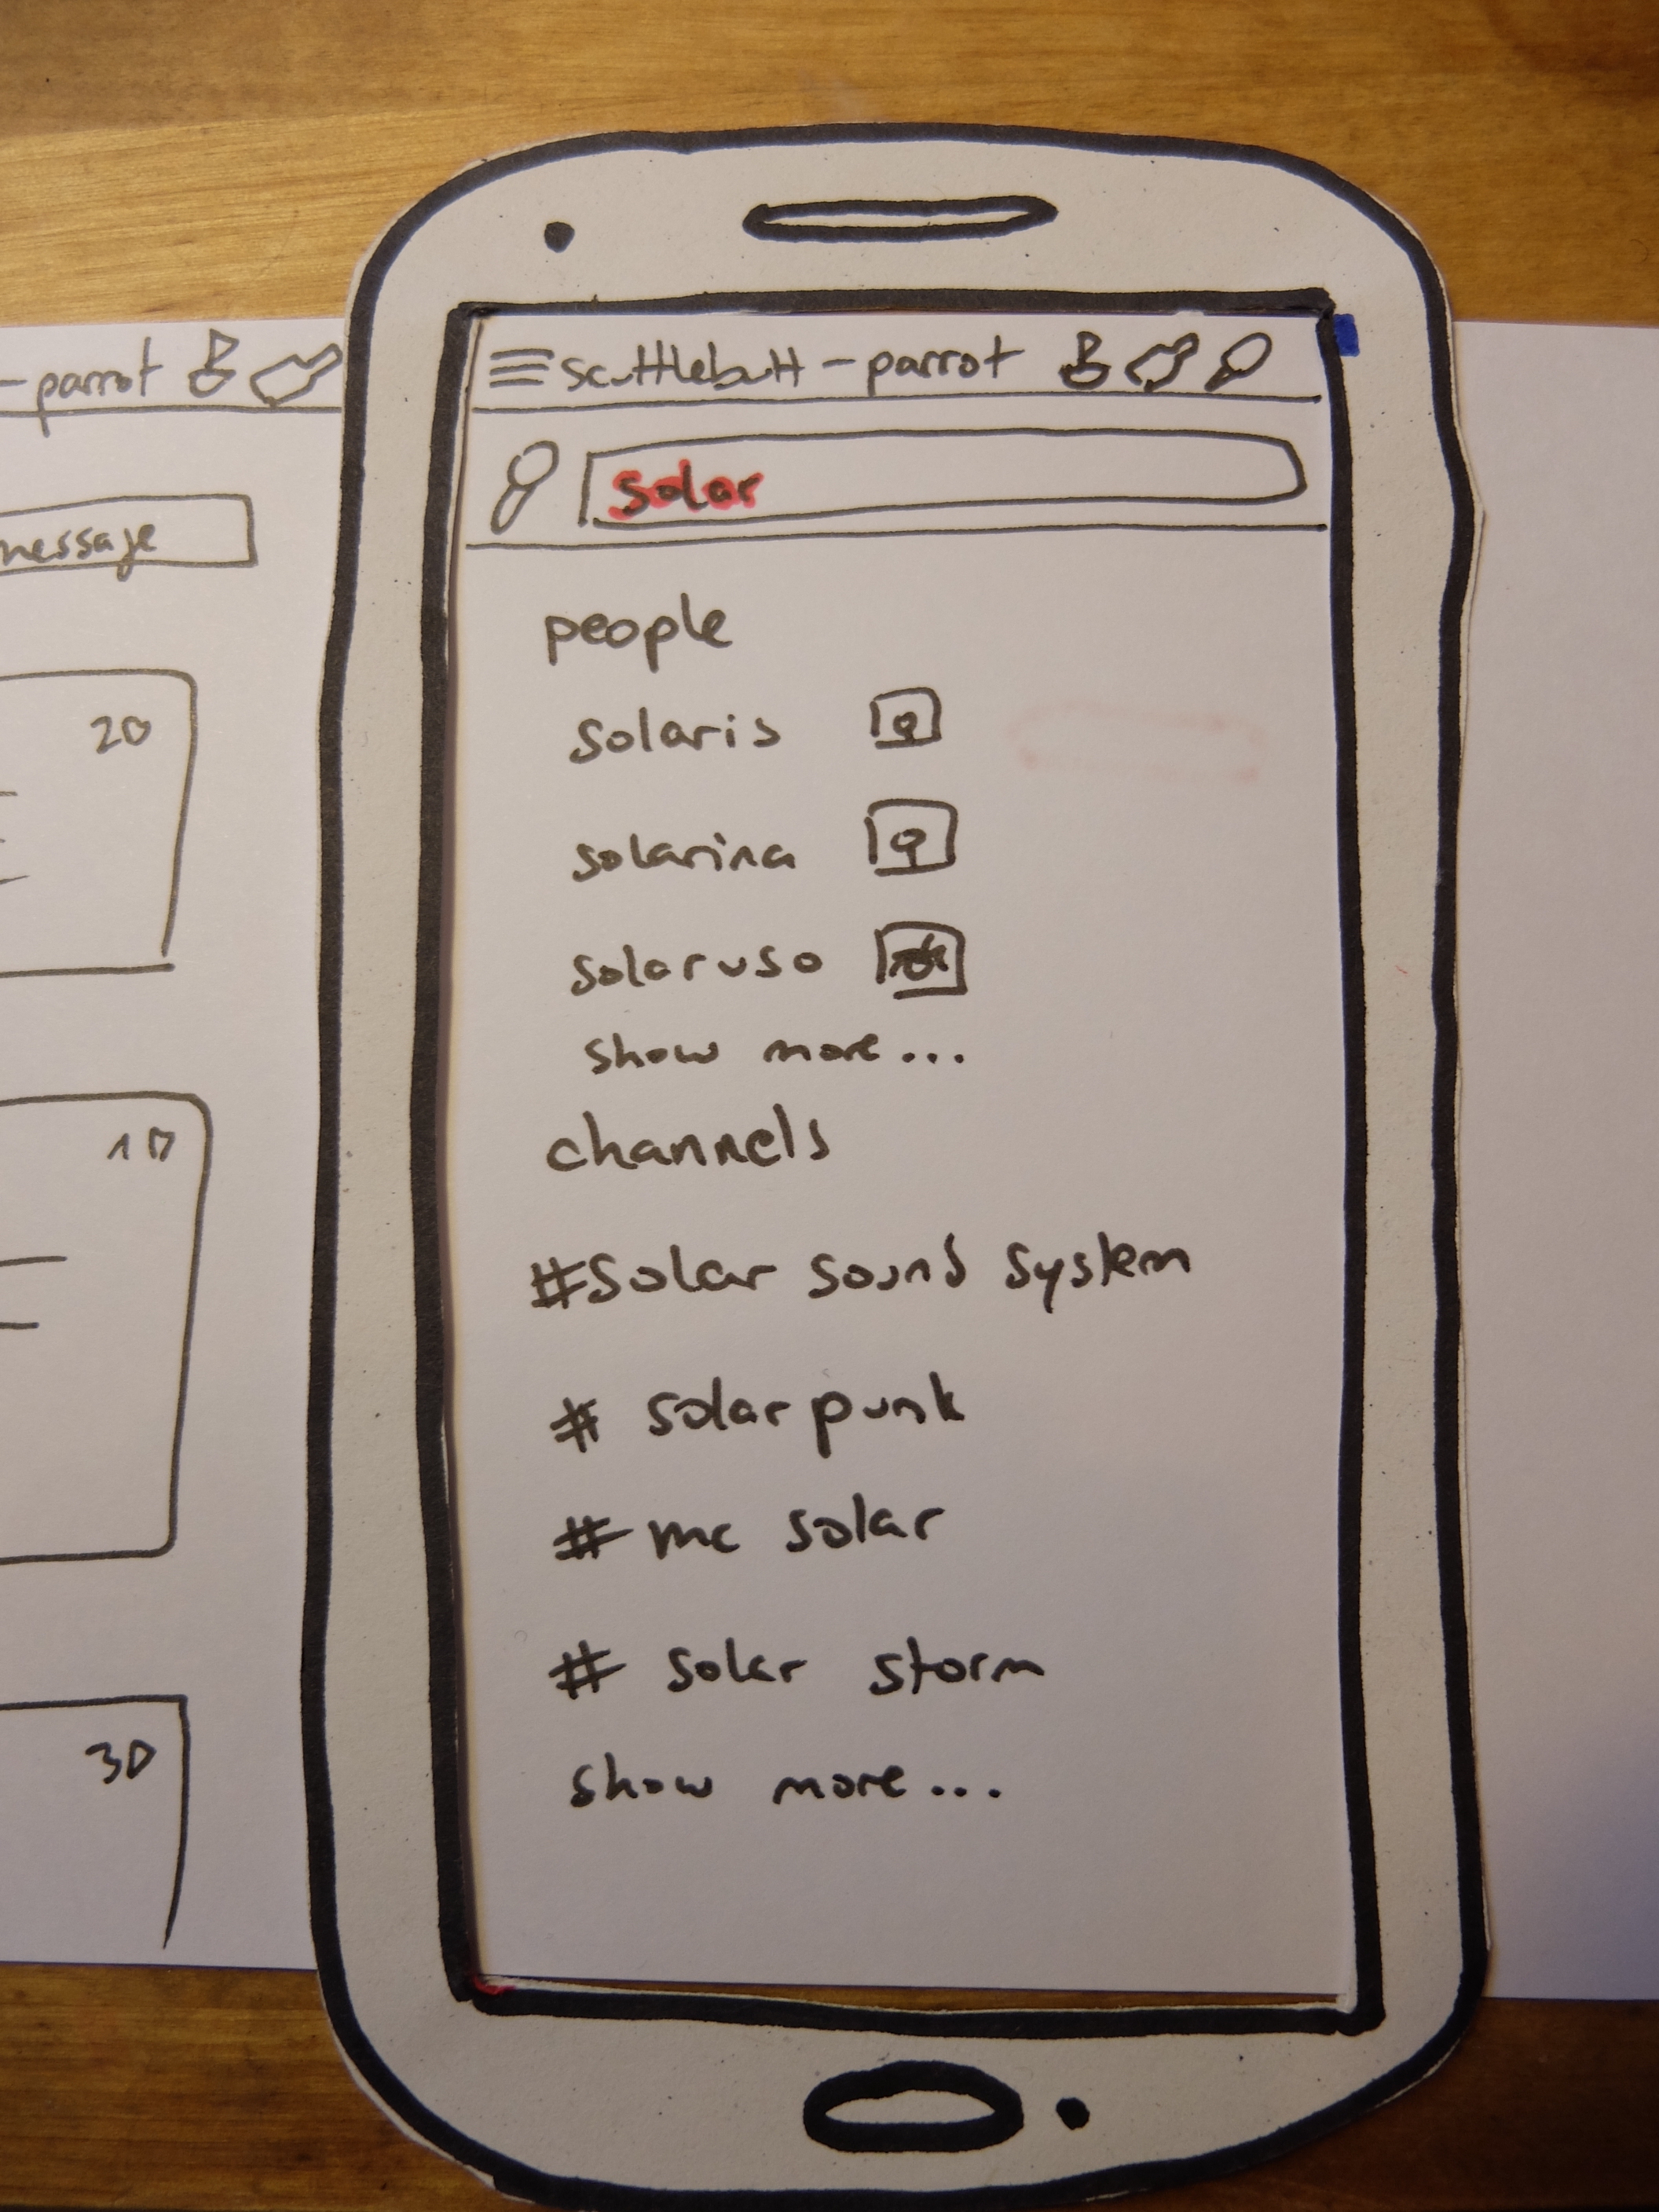 -parrot
message
20
10
30
scuttlebutt-parrot
solar
people
solaris
solarina
solaruso
show more...
channels
#solar sound system
# solarpunk
# mc solar
# solar storm
show more...